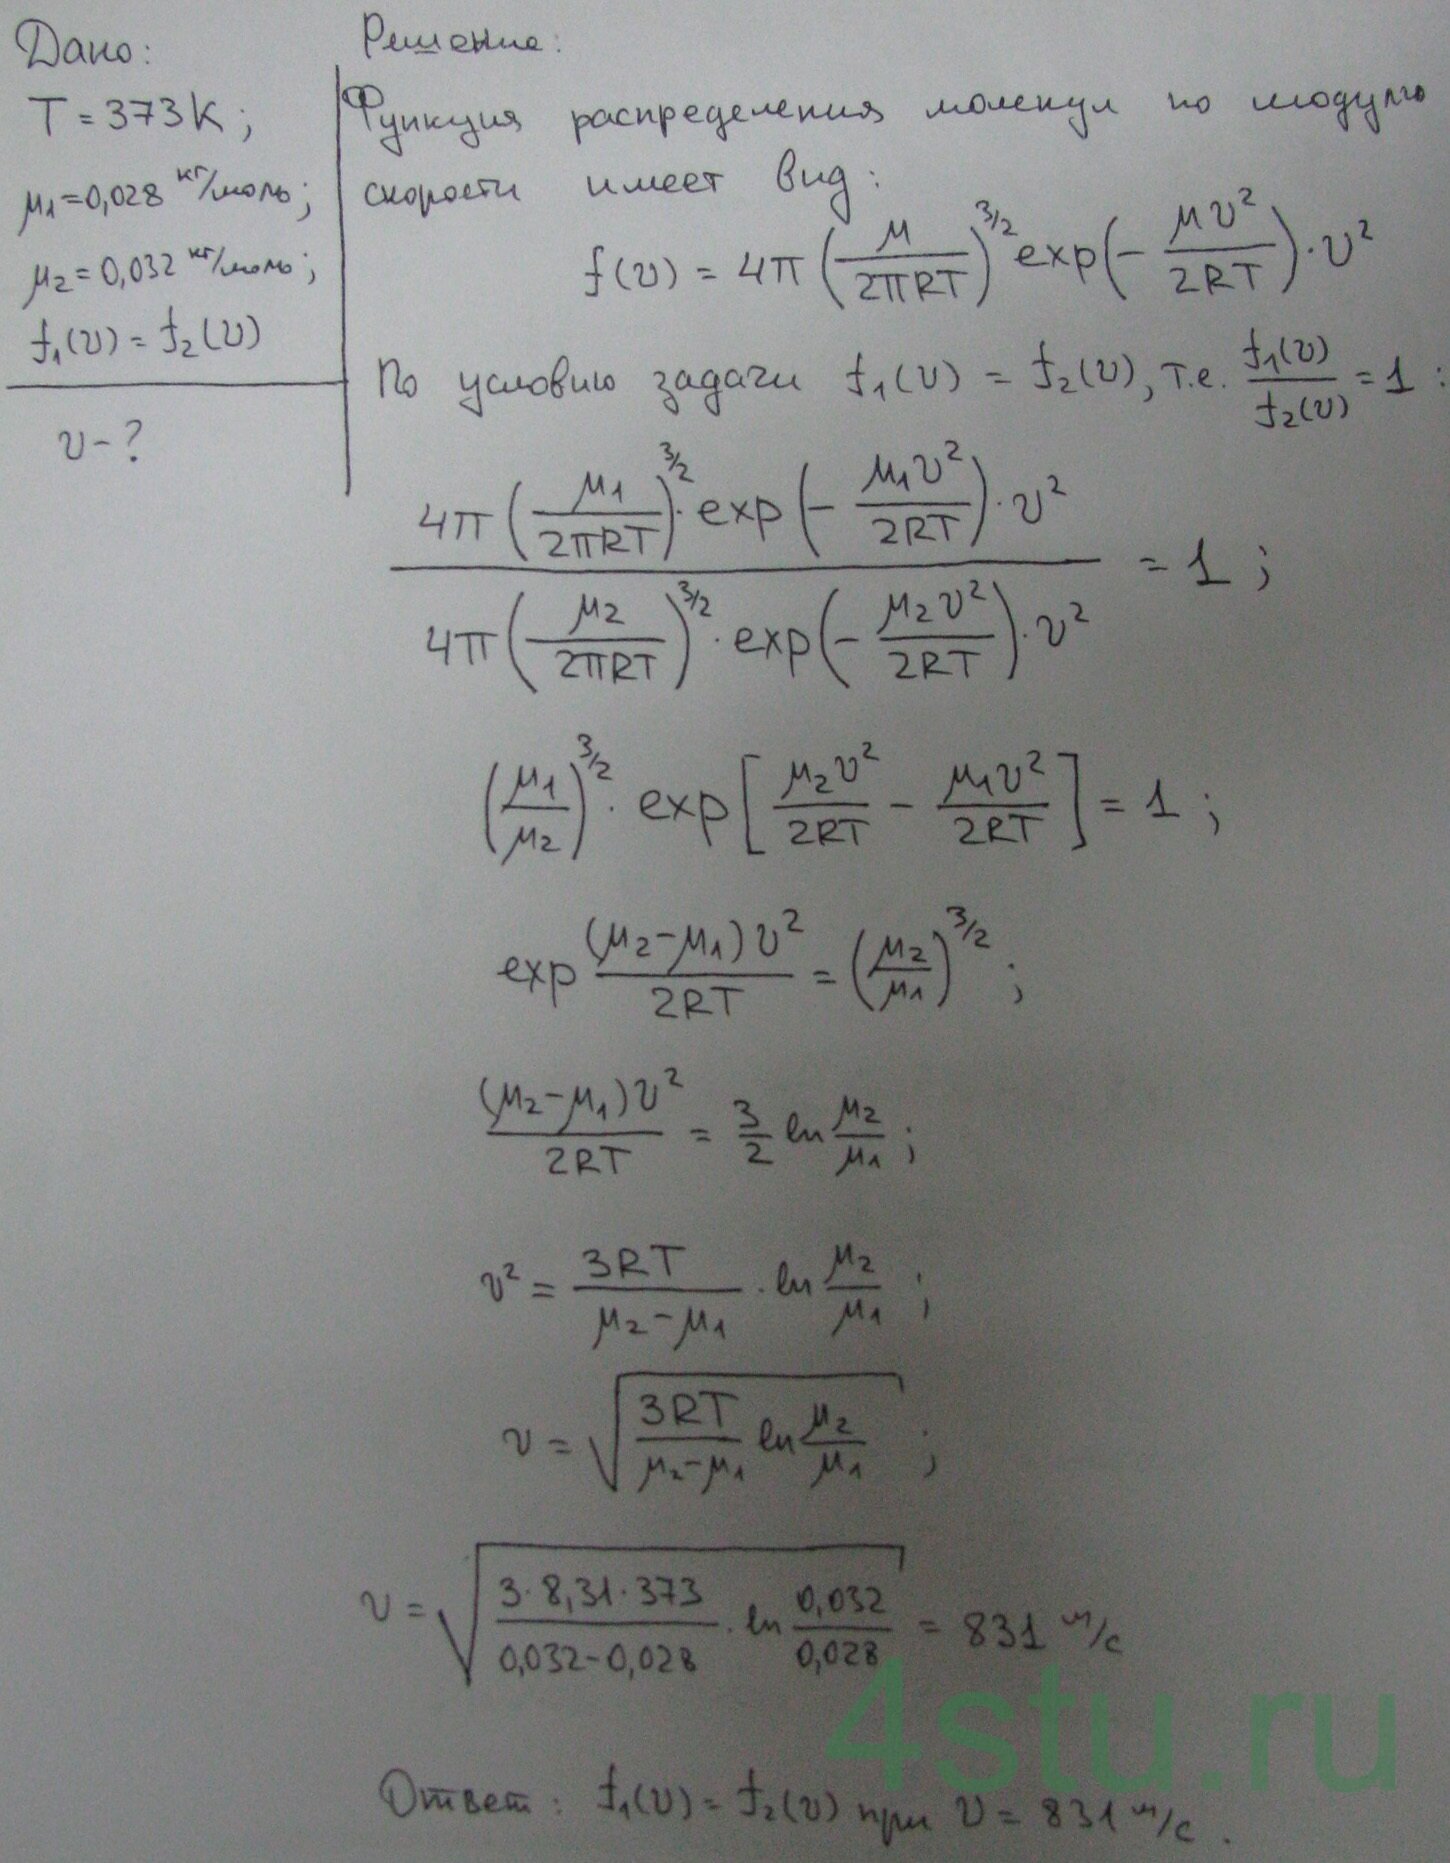 Дано:
T = 373 K;
μ₁ = 0,028 кг/моль;
μ₂ = 0,032 кг/моль;
f₁(υ) = f₂(υ)
υ - ?
Решение:
Функция распределения молекул по модулю
скорости имеет вид:
f(υ) = 4π (μ/2πRT)^3/2 exp(- μυ²/2RT) · υ²
По условию задачи f₁(υ) = f₂(υ), т.е. f₁(υ)/f₂(υ) = 1 :
4π (μ₁/2πRT)^3/2 · exp(- μ₁υ²/2RT) · υ² / 4π (μ₂/2πRT)^3/2 · exp(- μ₂υ²/2RT) · υ² = 1 ;
(μ₁/μ₂)^3/2 · exp[μ₂υ²/2RT - μ₁υ²/2RT] = 1 ;
exp (μ₂-μ₁)υ²/2RT = (μ₂/μ₁)^3/2 ;
(μ₂-μ₁)υ²/2RT = 3/2 ln μ₂/μ₁ ;
υ² = 3RT/μ₂-μ₁ · ln μ₂/μ₁ ;
υ = √(3RT/μ₂-μ₁ ln μ₂/μ₁) ;
υ = √(3·8,31·373/0,032-0,028 · ln 0,032/0,028) = 831 м/с
4stu.ru
Ответ: f₁(υ) = f₂(υ) при υ = 831 м/с.